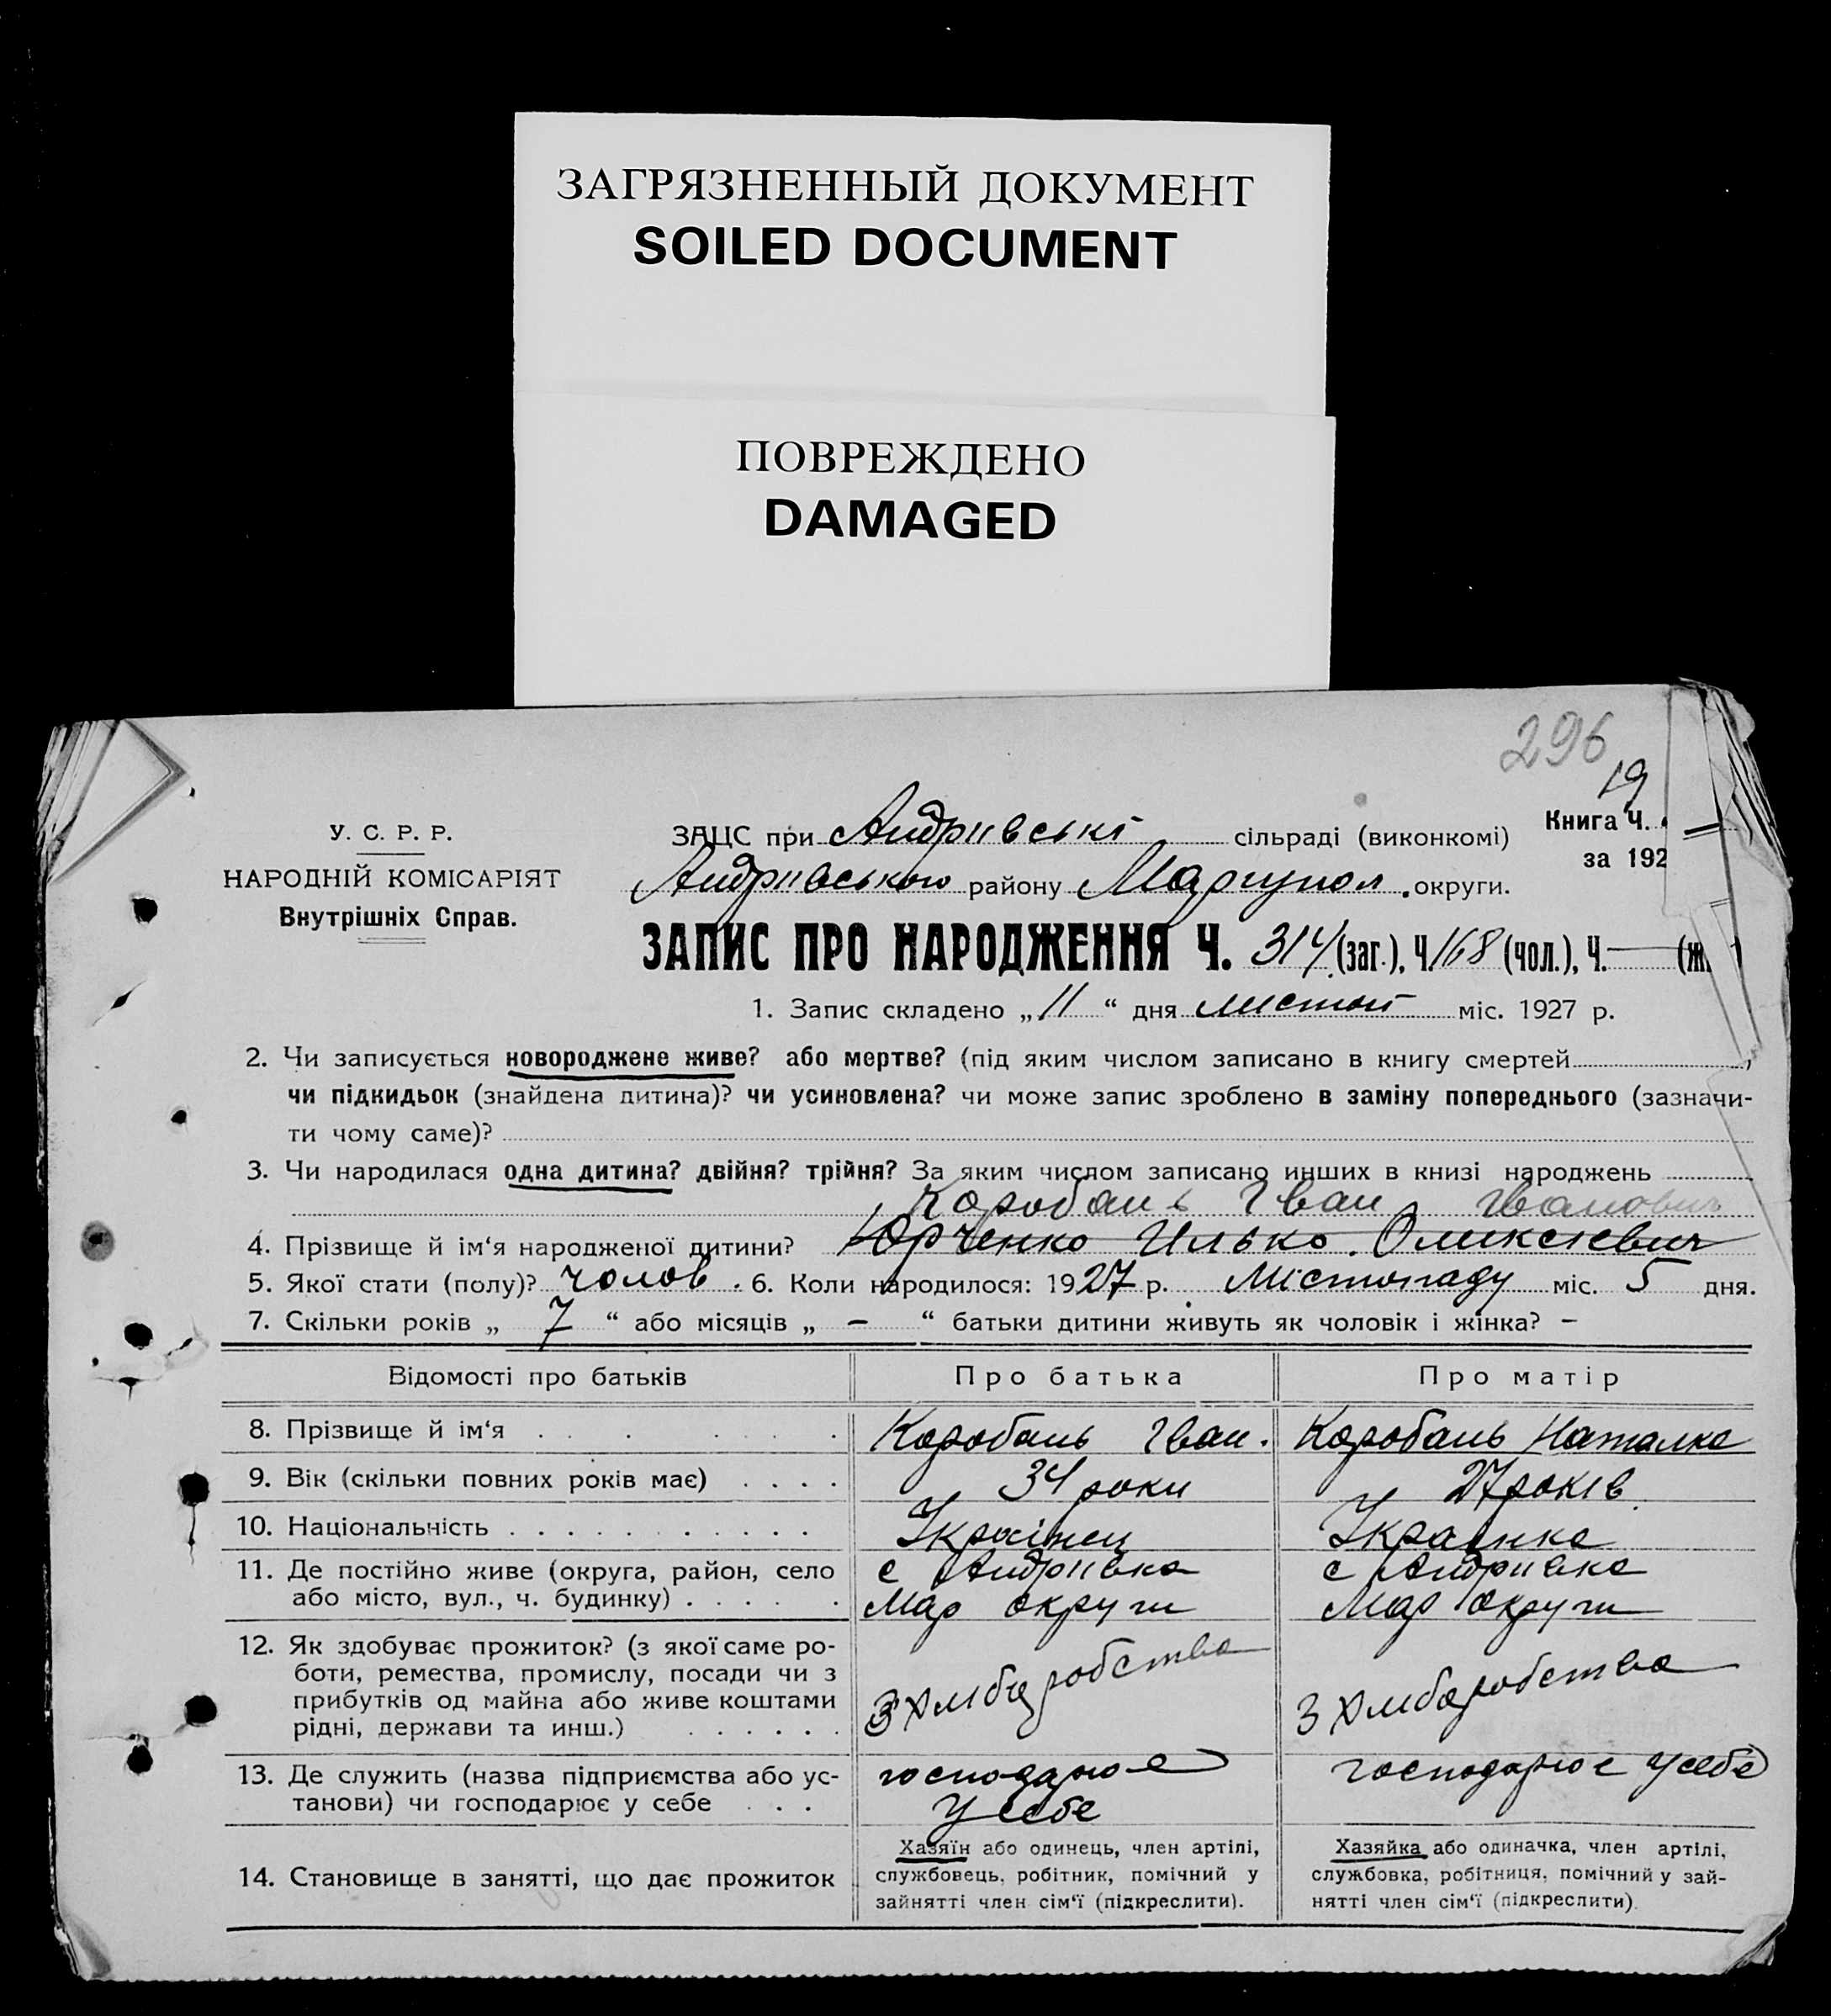 ЗАГРЯЗНЕННЫЙ ДОКУМЕНТ
SOILED DOCUMENT
ПОВРЕЖДЕНО
DAMAGED
296
19
У. С. Р. Р.
НАРОДНІЙ КОМІСАРІЯТ
Внутрішніх Справ.
ЗАЦС при Андріівські сільраді (виконкомі)
Книга Ч.
за 192
Андріівського району Маріупол. округи.
ЗАПИС ПРО НАРОДЖЕННЯ Ч. 314 (заг.), Ч. 168 (чол.), Ч. — (ж.
1. Запис складено „11“ дня листоп міс. 1927 р.
2. Чи записується новороджене живе? або мертве? (під яким числом записано в книгу смертей
чи підкидьок (знайдена дитина)? чи усиновлена? чи може запис зроблено в заміну попереднього (зазначи-
ти чому саме)?
3. Чи народилася одна дитина? двійня? трійня? За яким числом записано инших в книзі народжень
Коробань Іван Іванович
4. Прізвище й ім‘я народженої дитини? Юрченко Илько Оликсієвич
5. Якої стати (полу)? чолов. 6. Коли народилося: 1927 р. Містопаду міс. 5 дня.
7. Скільки років „ 7 “ або місяців „ — “ батьки дитини живуть як чоловік і жінка? –
Відомості про батьків Про батька Про матір
8. Прізвище й ім‘я Коробань Іван. Коробань Наталка
9. Вік (скільки повних років має) 34 роки 27 років
10. Національність Українец Украінка
11. Де постійно живе (округа, район, село с Андріівка с Андріівка
або місто, вул., ч. будинку) Мар округи Мар округи
12. Як здобуває прожиток? (з якої саме ро-
боти, ремества, промислу, посади чи з
прибутків од майна або живе коштами
рідні, держави та инш.)
З хлиборобства З хлиборобства
13. Де служить (назва підприємства або ус- господарює господарює у себе
танови) чи господарює у себе у себе
14. Становище в занятті, що дає прожиток
Хазяїн або одинець, член артілі,
службовець, робітник, помічний у
зайнятті член сім‘ї (підкреслити).
Хазяйка або одиначка, член артілі,
службовка, робітниця, помічний у зай-
нятті член сім‘ї (підкреслити).